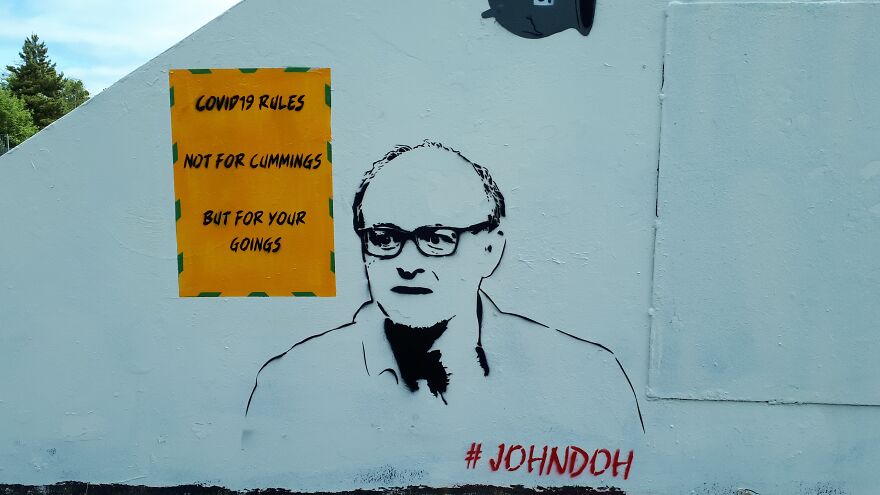 COVID19 RULES
NOT FOR CUMMINGS
BUT FOR YOUR
GOINGS
# JOHNDOH